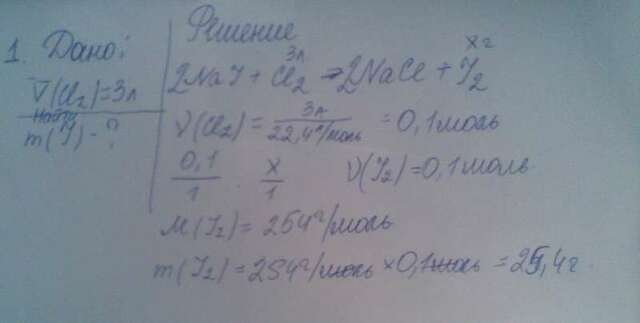 1. Дано:
V(Cl2)=3л
Найти
m(J)-?
Решение
3л хг
2NaJ + Cl2 → 2NaCl + J2
ν(Cl2) = 3л / 22,4л/моль = 0,1моль
0,1/1 · x/1 ν(J2)=0,1моль
M(J2)= 254г/моль
m(J2)=254г/моль×0,1моль = 25,4г.